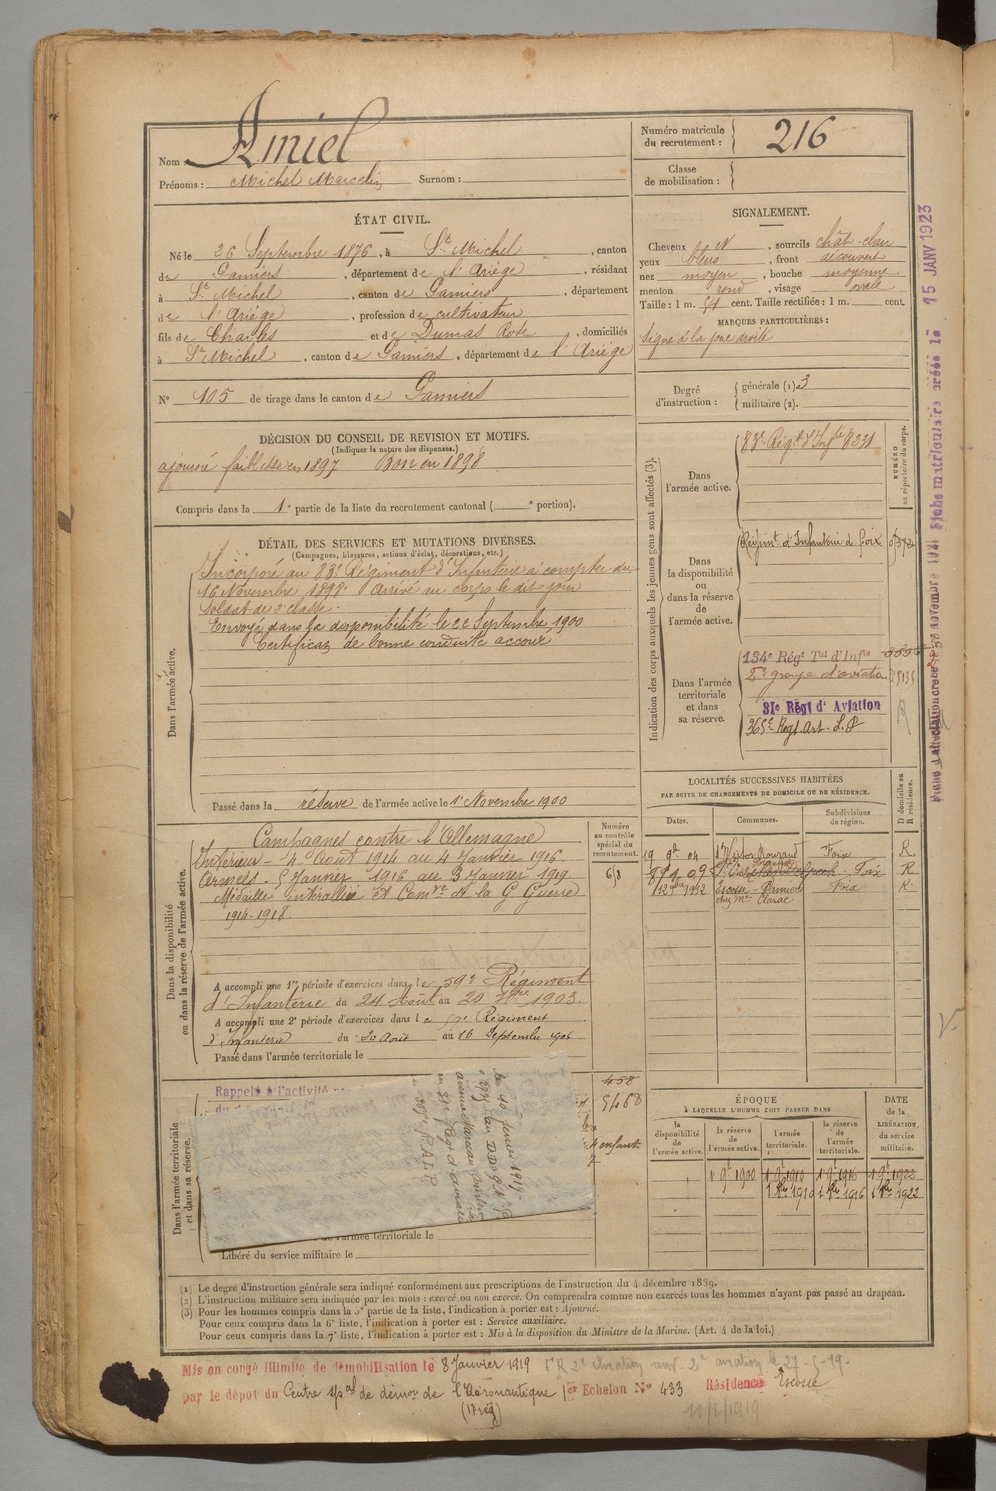 Nom : Amiel
Prénoms : Michel Marcelin Surnom :
Numéro matricule du recrutement : 216
Classe de mobilisation :
ÉTAT CIVIL.
Né le 26 Septembre 1876, à St Michel, canton
de Pamiers, département de l'Ariège, résidant
à St Michel, canton de Pamiers, département
de l'Ariège, profession de cultivateur
fils de Charles et de Dumas Rose, domiciliés
à St Michel, canton de Pamiers, département de l'Ariège
N° 105 de tirage dans le canton de Pamiers
SIGNALEMENT.
Cheveux et, sourcils chât. clair
yeux bleus, front découvert
nez moyen, bouche moyenne
menton rond, visage ovale
Taille : 1 m. 54 cent. Taille rectifiée : 1 m. cent.
MARQUES PARTICULIÈRES :
Signe à la joue droite
Degré d'instruction : générale (1) 3
militaire (2).
DÉCISION DU CONSEIL DE REVISION ET MOTIFS.
(Indiquer la nature des dispenses.)
ajourné faiblesse en 1897 Bon en 1898
Compris dans la 1e partie de la liste du recrutement cantonal ( e portion).
DÉTAIL DES SERVICES ET MUTATIONS DIVERSES.
(Campagnes, blessures, actions d'éclat, décorations, etc.)
Dans l'armée active.
Incorporé au 83e Régiment d'Infanterie à compter du
16 Novembre 1898. Arrivé au corps le dit jour
Soldat de 2e classe.
Envoyé dans la disponibilité le 22 Septembre 1900
Certificat de bonne conduite accordé
Passé dans la réserve de l'armée active le 1er Novembre 1900
Indication des corps auxquels les jeunes gens sont affectés (3).
NUMÉRO au répertoire du corps.
Dans l'armée active.
83e Régt d'Infie 8231
Dans la disponibilité ou dans la réserve de l'armée active.
Régimt d'Infanterie de Foix
Dans l'armée territoriale et dans sa réserve.
134e Régt Tal d'Infie
2e groupe d'aviation
31e Régt d'Aviation
365e Régt Art. L.P
LOCALITÉS SUCCESSIVES HABITÉES
PAR SUITE DE CHANGEMENTS DE DOMICILE OU DE RÉSIDENCE.
Dates. Communes. Subdivisions de région. D domicile ou R résidence.
19 9bre 04 St Victor Rouzaud Foix R
Foix R
1912 Escosse - Pamiers Foix R
chez Mr Clarac
Dans la disponibilité ou dans la réserve de l'armée active.
Numéro au contrôle spécial du recrutement.
618
Campagnes contre l'Allemagne
Intérieur - 4 Août 1914 au 4 Janvier 1916
Armées - 5 Janvier 1916 au 3 Janvier 1919
Médaille interalliée et Comve de la G Guerre
1914-1918.
A accompli une 1re période d'exercices dans le 59e Régiment
d'Infanterie du 24 Août au 20 7bre 1903.
A accompli une 2e période d'exercices dans le 59e Régiment
d'Infanterie du 20 Août au 16 Septembre 1906
Passé dans l'armée territoriale le
Dans l'armée territoriale et dans sa réserve.
Rappelé à l'activité
458
5468
4 enfants
de l'armée territoriale le
Libéré du service militaire le
ÉPOQUE
À LAQUELLE L'HOMME DOIT PASSER DANS
la disponibilité de l'armée active. la réserve de l'armée active. l'armée territoriale. la réserve de l'armée territoriale.
DATE de la LIBÉRATION, du service militaire.
1 9bre 1900 1 9bre 1910 1 9bre 1916 1 9bre 1922
1 8bre 1910 1 8bre 1916 1 8bre 1922
(1) Le degré d'instruction générale sera indiqué conformément aux prescriptions de l'instruction du 4 décembre 1889.
(2) L'instruction militaire sera indiquée par les mots : exercé ou non exercé. On comprendra comme non exercés tous les hommes n'ayant pas passé au drapeau.
(3) Pour les hommes compris dans la 5e partie de la liste, l'indication à porter est : Ajourné.
Pour ceux compris dans la 6e liste, l'indication à porter est : Service auxiliaire.
Pour ceux compris dans la 7e liste, l'indication à porter est : Mis à la disposition du Ministre de la Marine. (Art. 4 de la loi.)
Mis en congé illimité de démobilisation le 8 Janvier 1919
par le dépôt du Centre spal de démon de l'Aéronautique 1er Echelon N° 433 Résidence Escosse
(17 rég)
15 JANV 1923